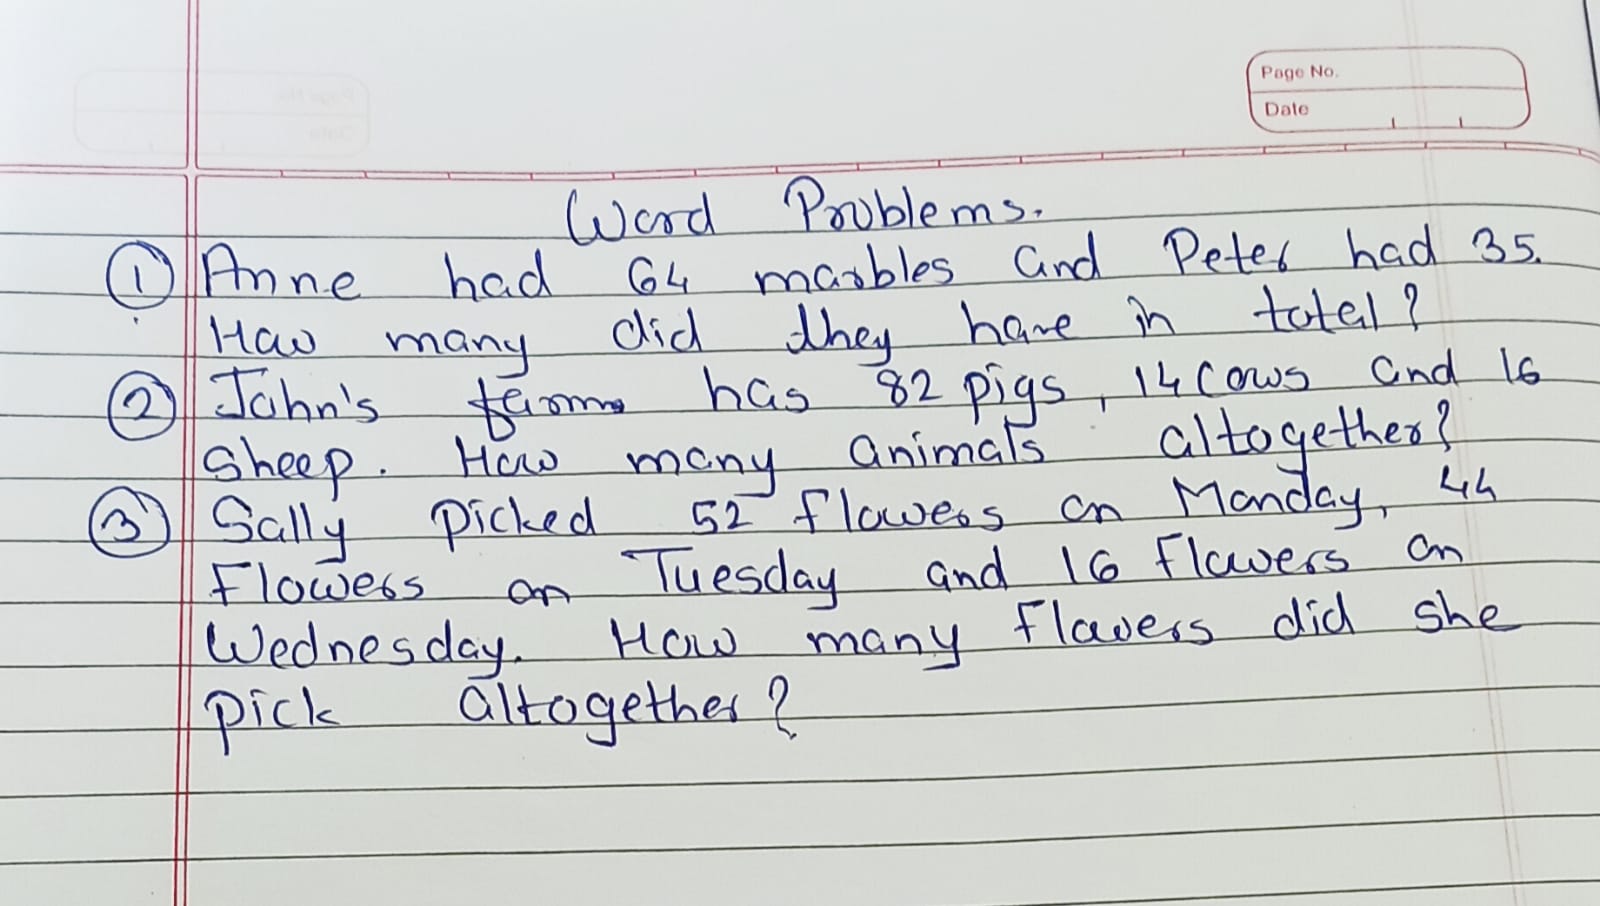 Page No.
Date
Word Problems.
① Anne had 64 marbles and Peter had 35.
How many did they have in total?
② John's farm has 82 pigs, 14 Cows and 16
Sheep. How many animals altogether?
③ Sally picked 52 flowers on Monday, 44
Flowers on Tuesday and 16 flowers on
Wednesday. How many flowers did she
pick altogether?